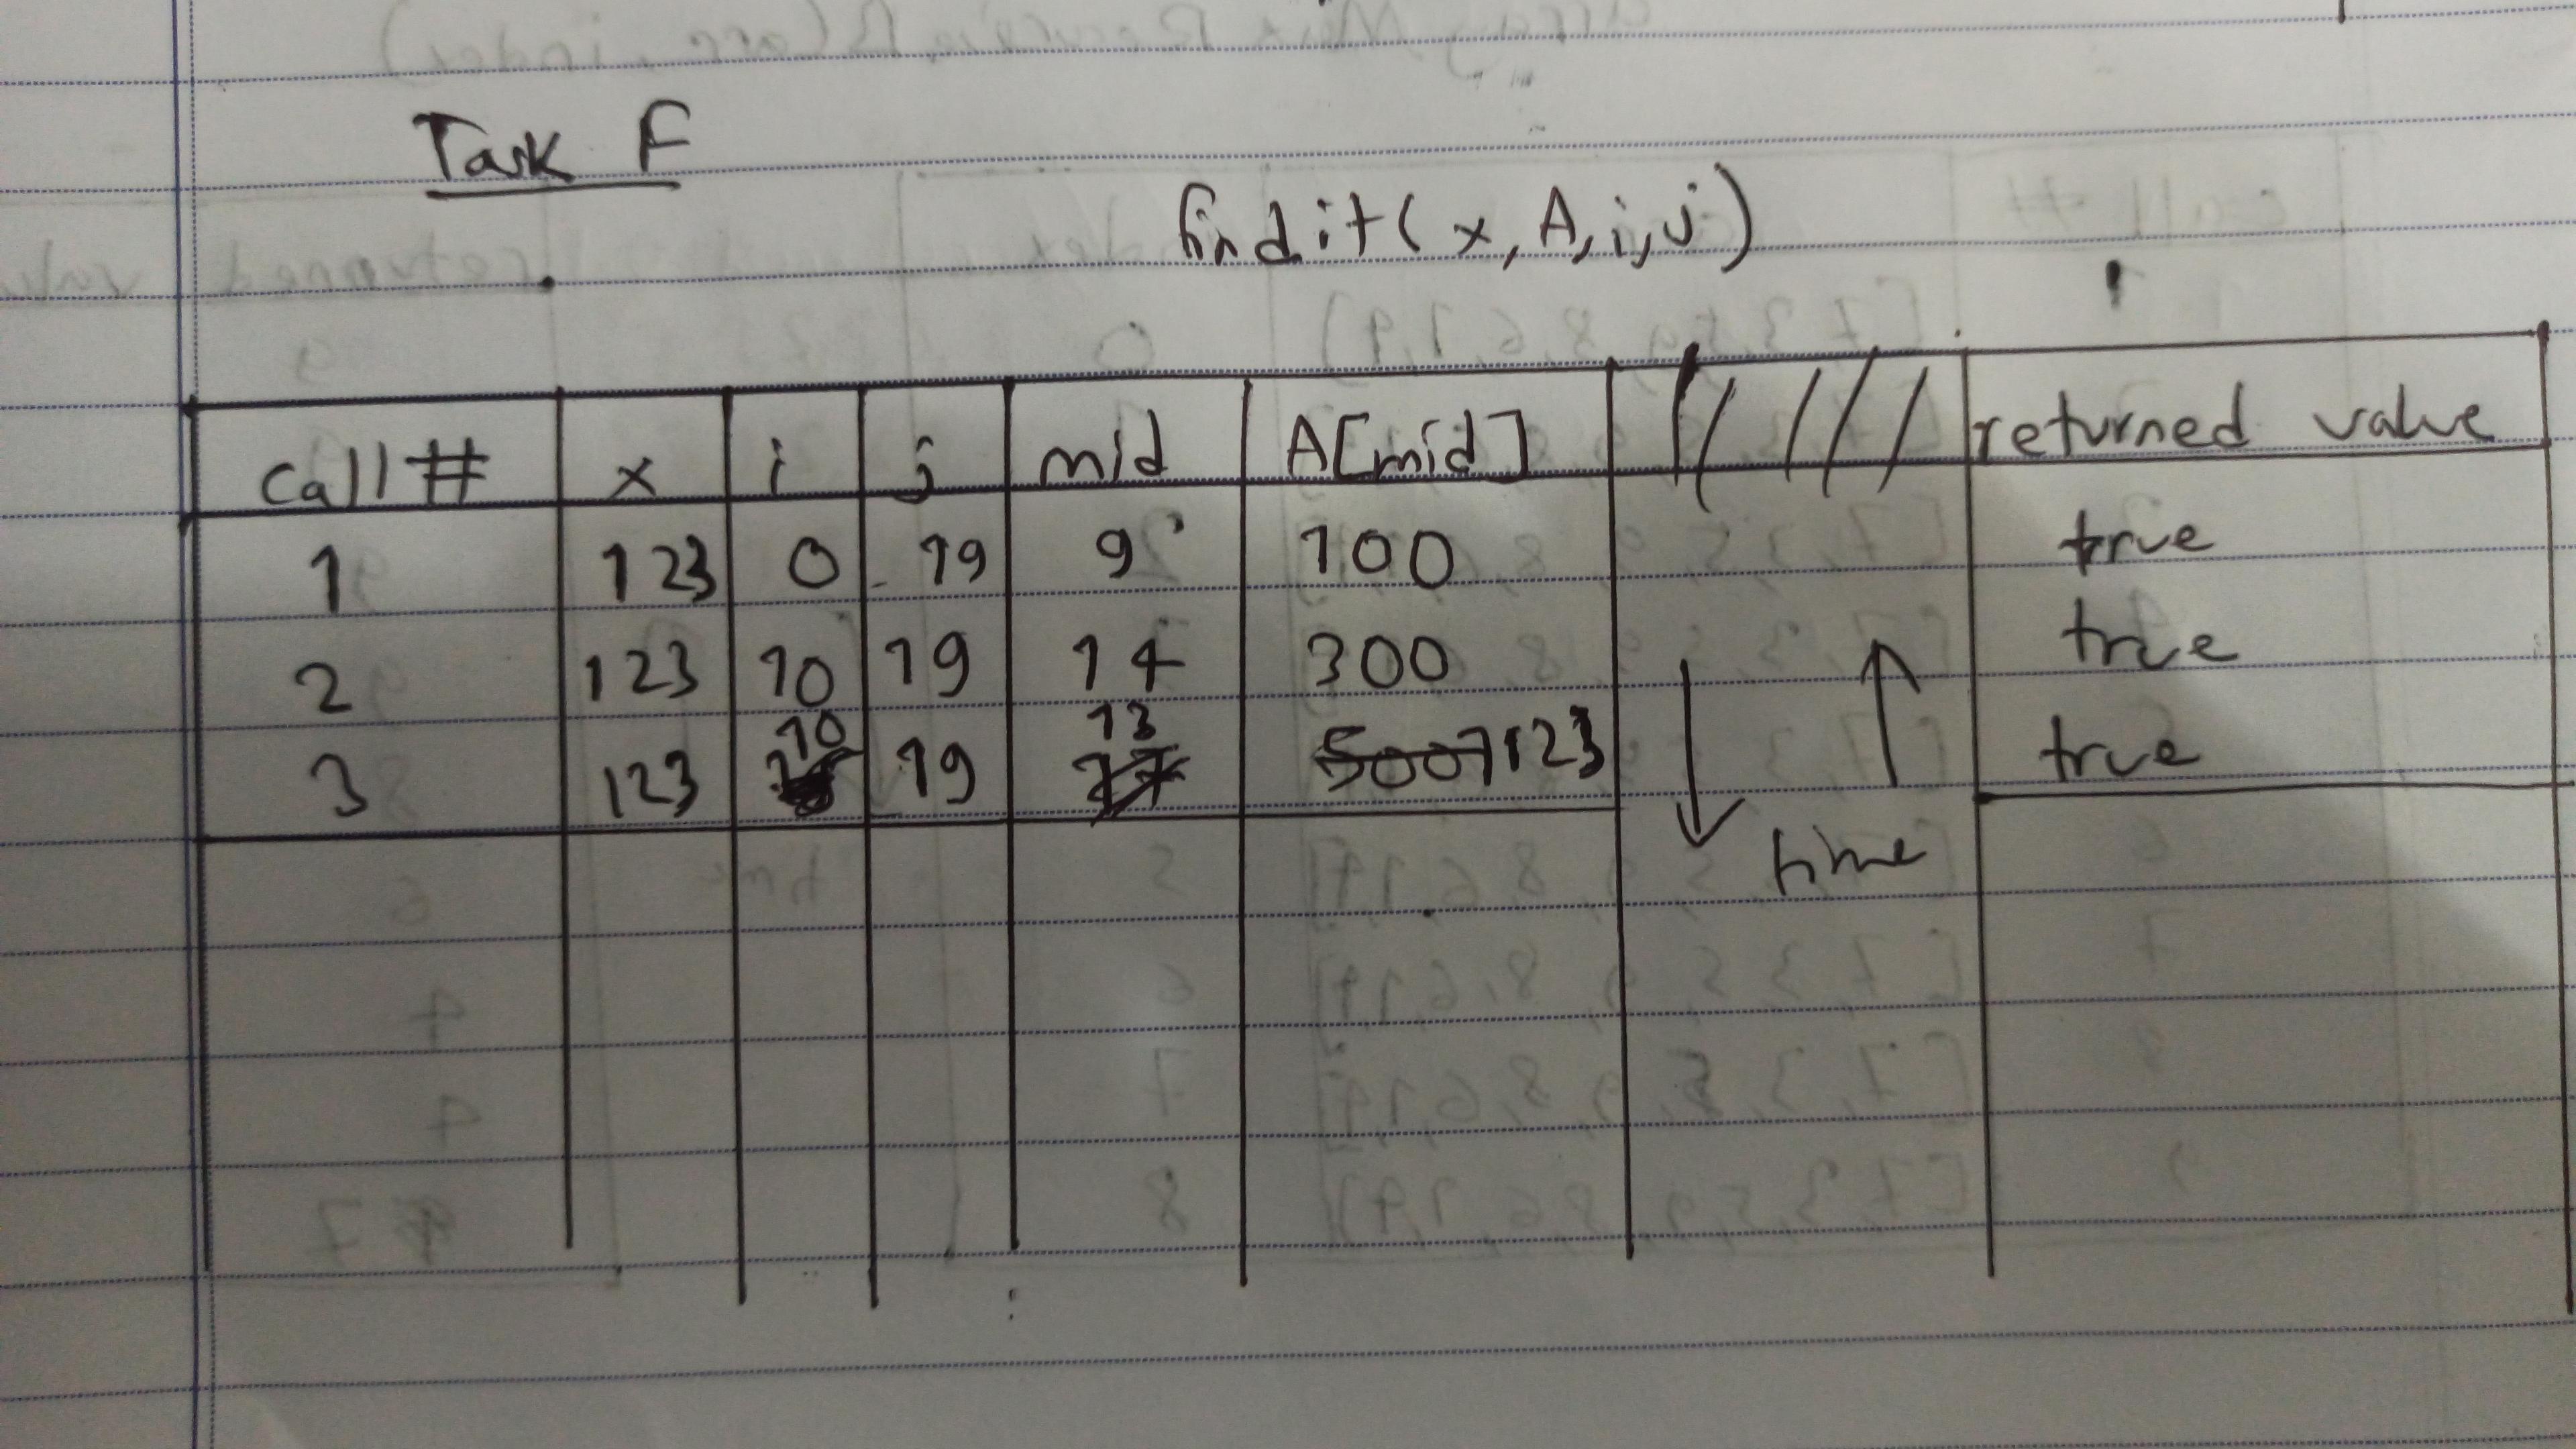 Task F
findit(x, A, i, j)
call # x i j mid A[mid] returned value
1 123 0 19 9 100 true
2 123 10 19 14 300 true
3 123 10 19 13 123 true
time